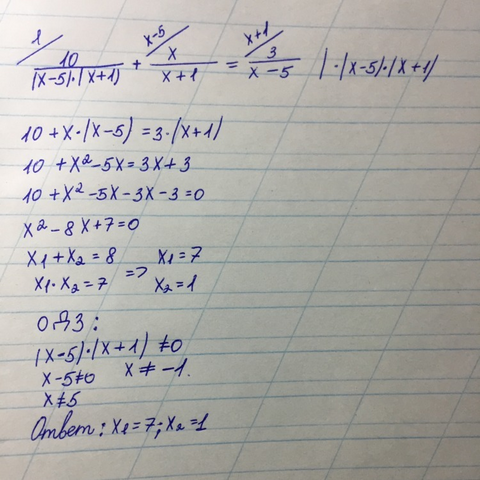 1/ 10/((x-5)·(x+1)) + x-5/ x/(x+1) = x+1/ 3/(x-5) | ·(x-5)·(x+1)
10+x·(x-5)=3·(x+1)
10+x²-5x=3x+3
10+x²-5x-3x-3=0
x²-8x+7=0
x₁+x₂=8 => x₁=7
x₁·x₂=7 x₂=1
ОДЗ:
(x-5)·(x+1)≠0
x-5≠0 x≠-1.
x≠5
Ответ: x₁=7; x₂=1